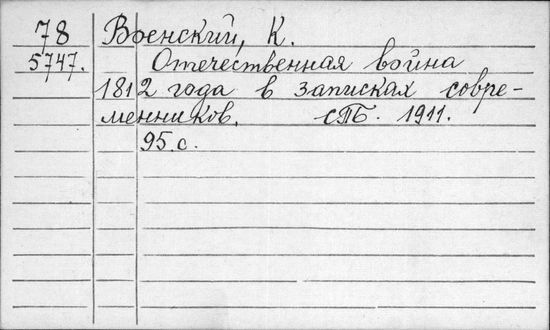 78 Военский, К.
5747. Отечественная война
1812 года в записках совре-
менников. СПБ. 1911.
95.с.